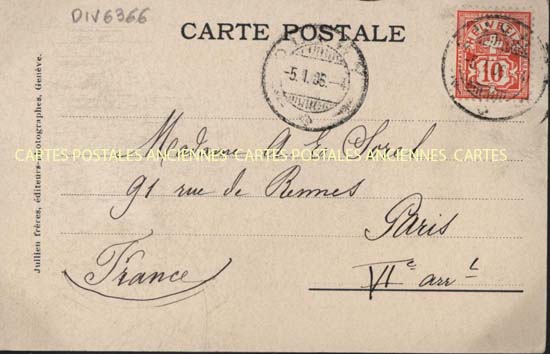 DIV6366
CARTE POSTALE
10
5.I.
Madame A. E. Sorel
CARTES POSTALES ANCIENNES CARTES POSTALES ANCIENNES CARTES
91 rue de Rennes
Paris
France
VIe arrt
Jullien frères, éditeurs-photographes, Genève.